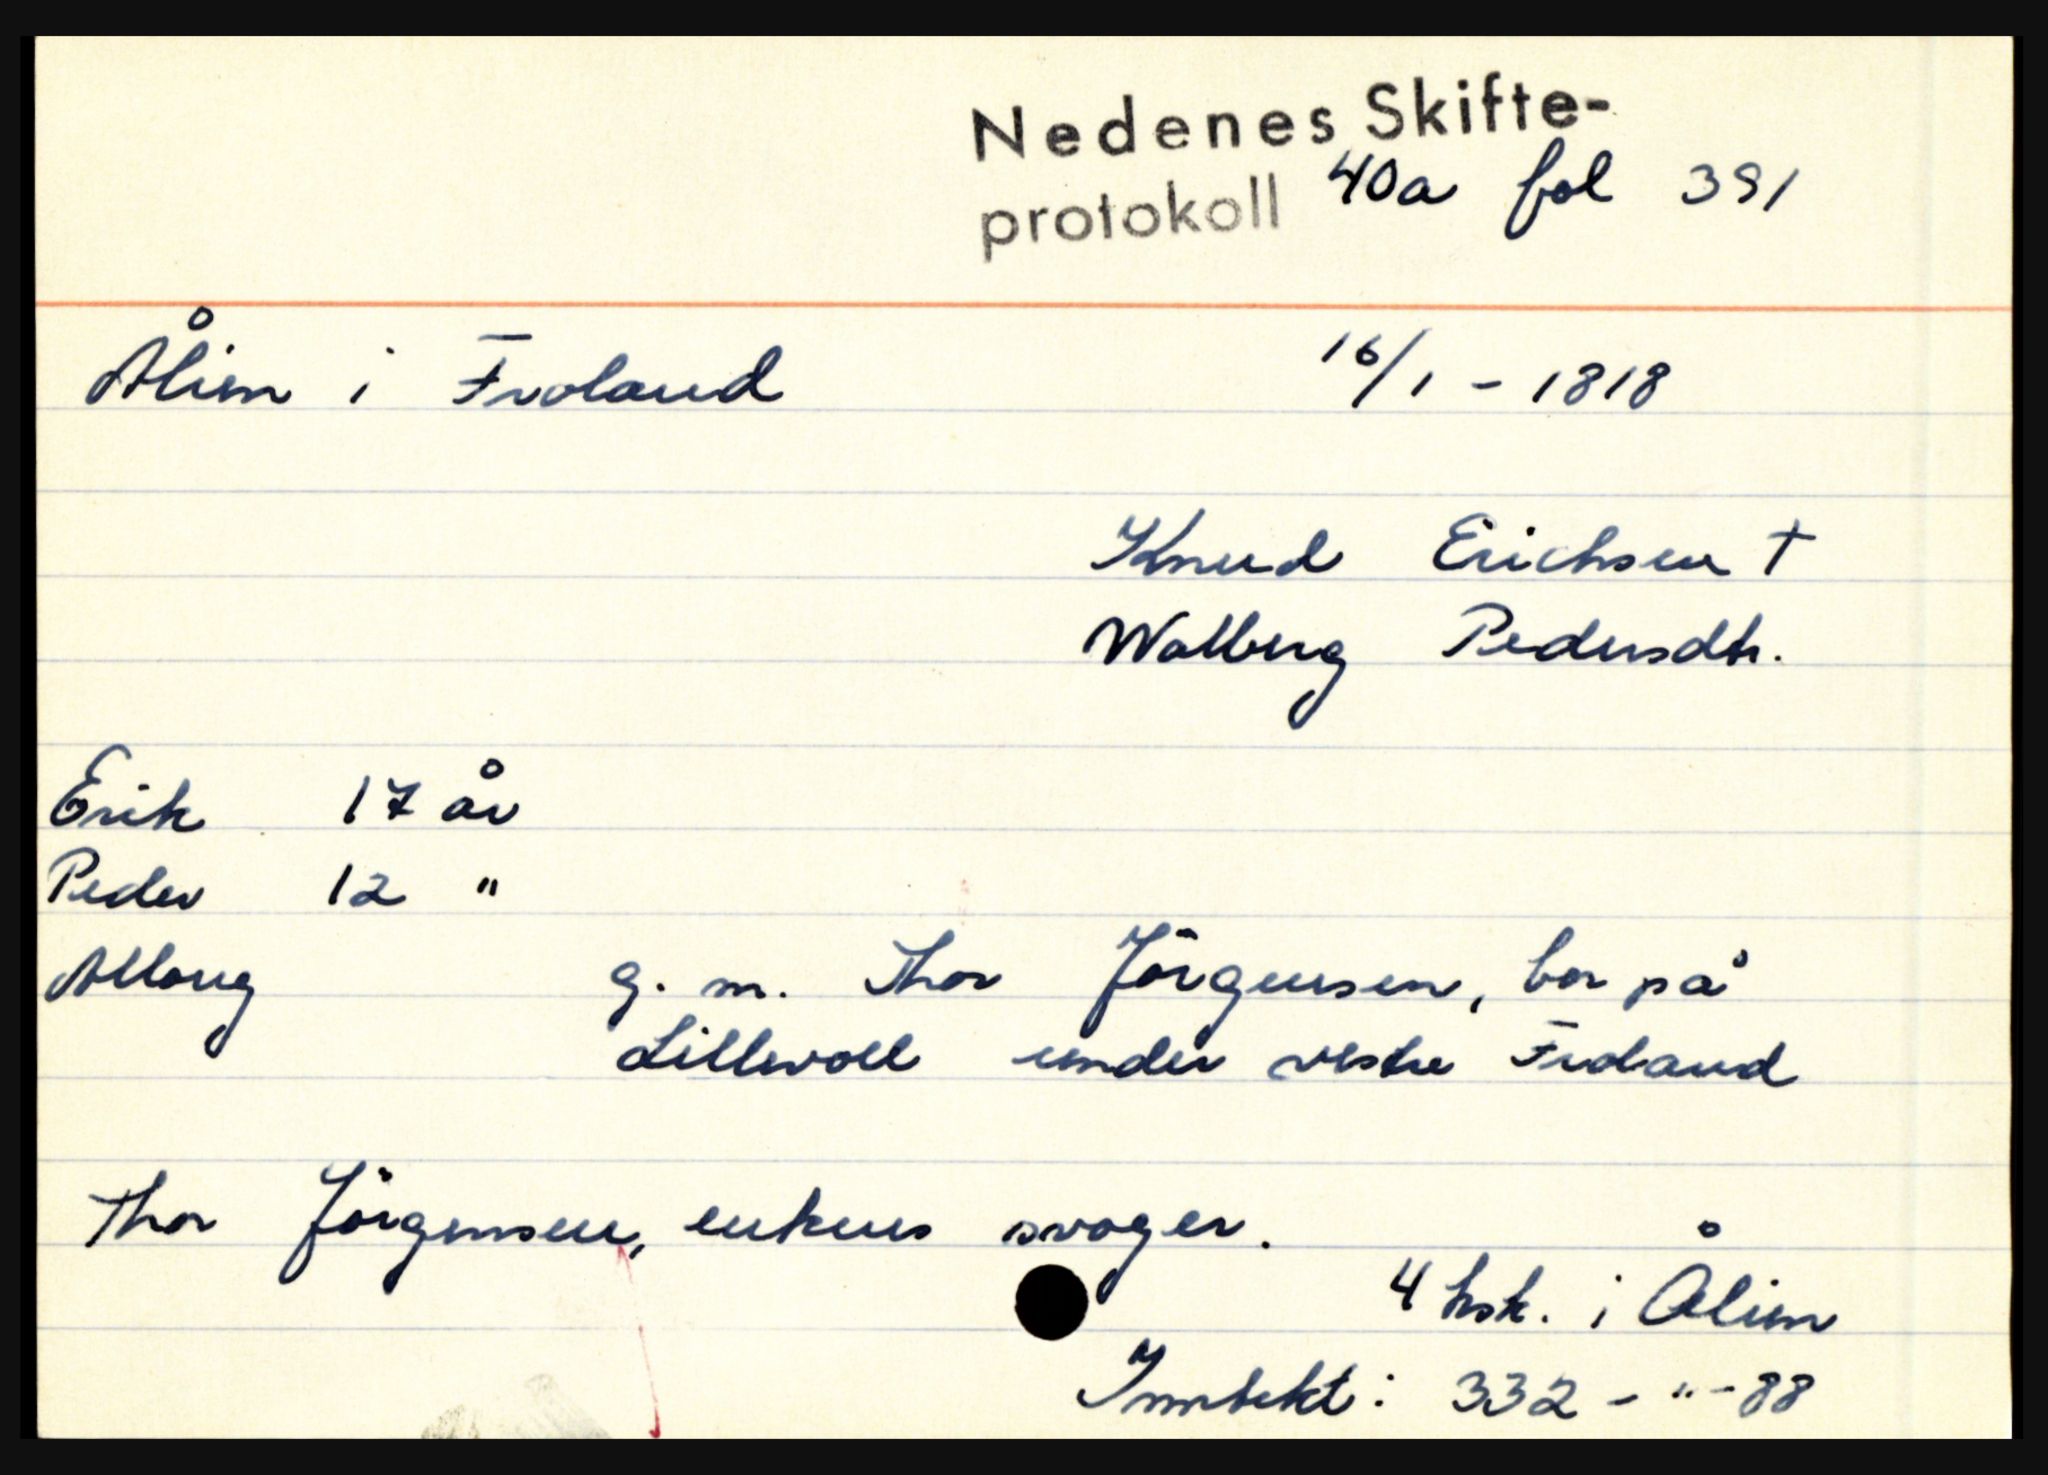 Nedenes Skifte-
protokoll 40a fol 391
Ålien i Froland 16/1 - 1818
Knud Erichsen †
Walberg Pedersdtr.
Erik 17 år
Peder 12 "
Allong g. m. Thor Jörgensen, bor på
Lillevoll under vestre Froland
Thor Jörgensen, enkens svoger.
4 hsk. i Ålien
Inntekt: 332 - " - 88